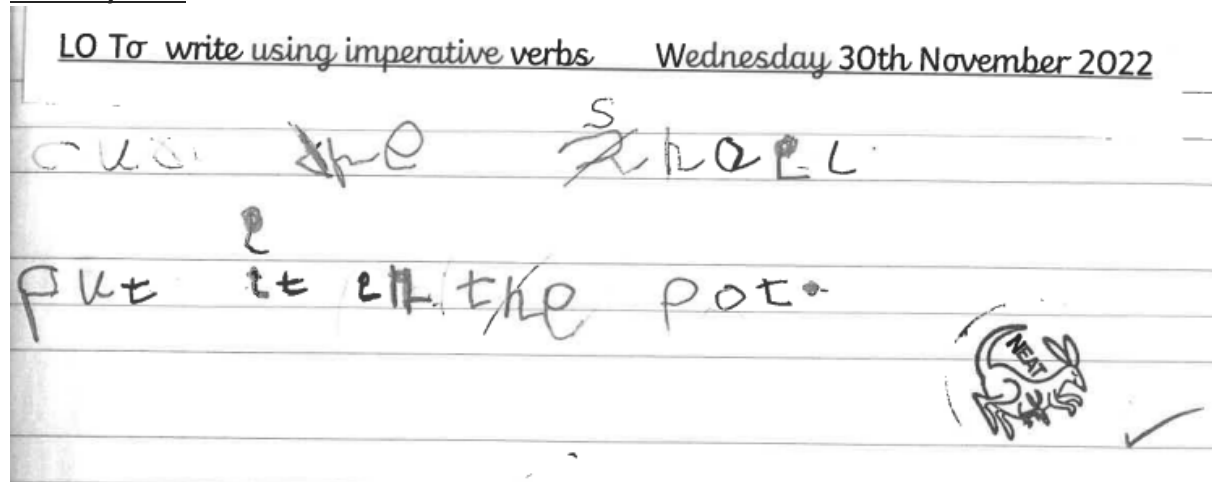 LO To write using imperative verbs Wednesday 30th November 2022
the
put it in the pot.
NEAT